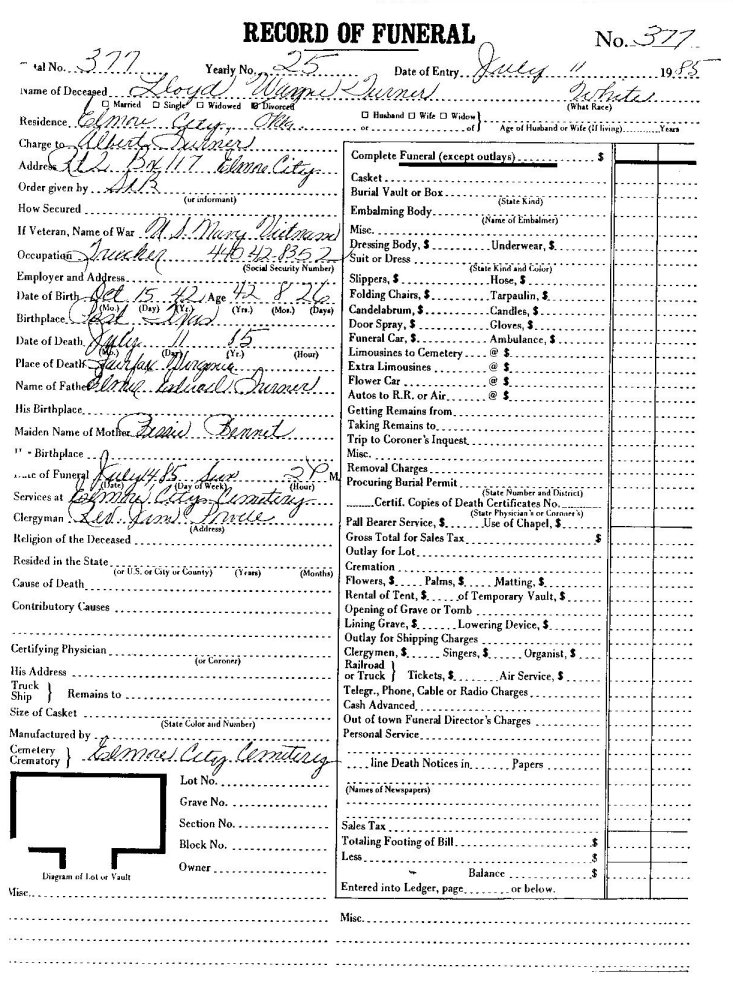 RECORD OF FUNERAL No. 377
tal No. 377 Yearly No. 25 Date of Entry July 11 1985
Name of Deceased Lloyd Wayne Turner White
(What Race)
☐ Married ☐ Single ☐ Widowed ☒ Divorced
Residence Elmore City, Okla
☐ Husband ☐ Wife ☐ Widow
or of Age of Husband or Wife (If living) Years
Charge to Albert Turner
Address Bx 117 Elmore City
Order given by
(or informant)
How Secured
If Veteran, Name of War U.S. Navy Vietnam
Occupation Trucker 440 42 8352
(Social Security Number)
Employer and Address
Date of Birth Oct 15 42 Age 42 8 26
(Mo.) (Day) (Yr.) (Yrs.) (Mos.) (Days)
Birthplace
Date of Death July 11 85
(Mo.) (Day) (Yr.) (Hour)
Place of Death Fairfax Virginia
Name of Father Elmer Edward Turner
His Birthplace
Maiden Name of Mother Bessie Bennet
" " Birthplace
Date of Funeral July 14 85 Sun 2 P M.
(Date) (Day of Week) (Hour)
Services at Elmore City Cemetery
Clergyman Rev. Jim
(Address)
Religion of the Deceased
Resided in the State
(or U.S. or City or County) (Years) (Months)
Cause of Death
Contributory Causes
Certifying Physician
(or Coroner)
His Address
Truck
Ship Remains to
Size of Casket
(State Color and Number)
Manufactured by
Cemetery
Crematory Elmore City Cemetery
Lot No.
Grave No.
Section No.
Block No.
Owner
Diagram of Lot or Vault
Misc.
Complete Funeral (except outlays) $
Casket
Burial Vault or Box
(State Kind)
Embalming Body
(Name of Embalmer)
Misc.
Dressing Body, $ Underwear, $
Suit or Dress
(State Kind and Color)
Slippers, $ Hose, $
Folding Chairs, $ Tarpaulin, $
Candelabrum, $ Candles, $
Door Spray, $ Gloves, $
Funeral Car, $ Ambulance, $
Limousines to Cemetery @ $
Extra Limousines @ $
Flower Car @ $
Autos to R.R. or Air @ $
Getting Remains from
Taking Remains to
Trip to Coroner's Inquest
Misc.
Removal Charges
Procuring Burial Permit
(State Number and District)
Certif. Copies of Death Certificates No.
(State Physician's or Coroner's)
Pall Bearer Service, $ Use of Chapel, $
Gross Total for Sales Tax $
Outlay for Lot
Cremation
Flowers, $ Palms, $ Matting, $
Rental of Tent, $ of Temporary Vault, $
Opening of Grave or Tomb
Lining Grave, $ Lowering Device, $
Outlay for Shipping Charges
Clergymen, $ Singers, $ Organist, $
Railroad
or Truck Tickets, $ Air Service, $
Telegr., Phone, Cable or Radio Charges
Cash Advanced
Out of town Funeral Director's Charges
Personal Service
line Death Notices in Papers
(Names of Newspapers)
Sales Tax
Totaling Footing of Bill $
Less $
Balance $
Entered into Ledger, page or below.
Misc.